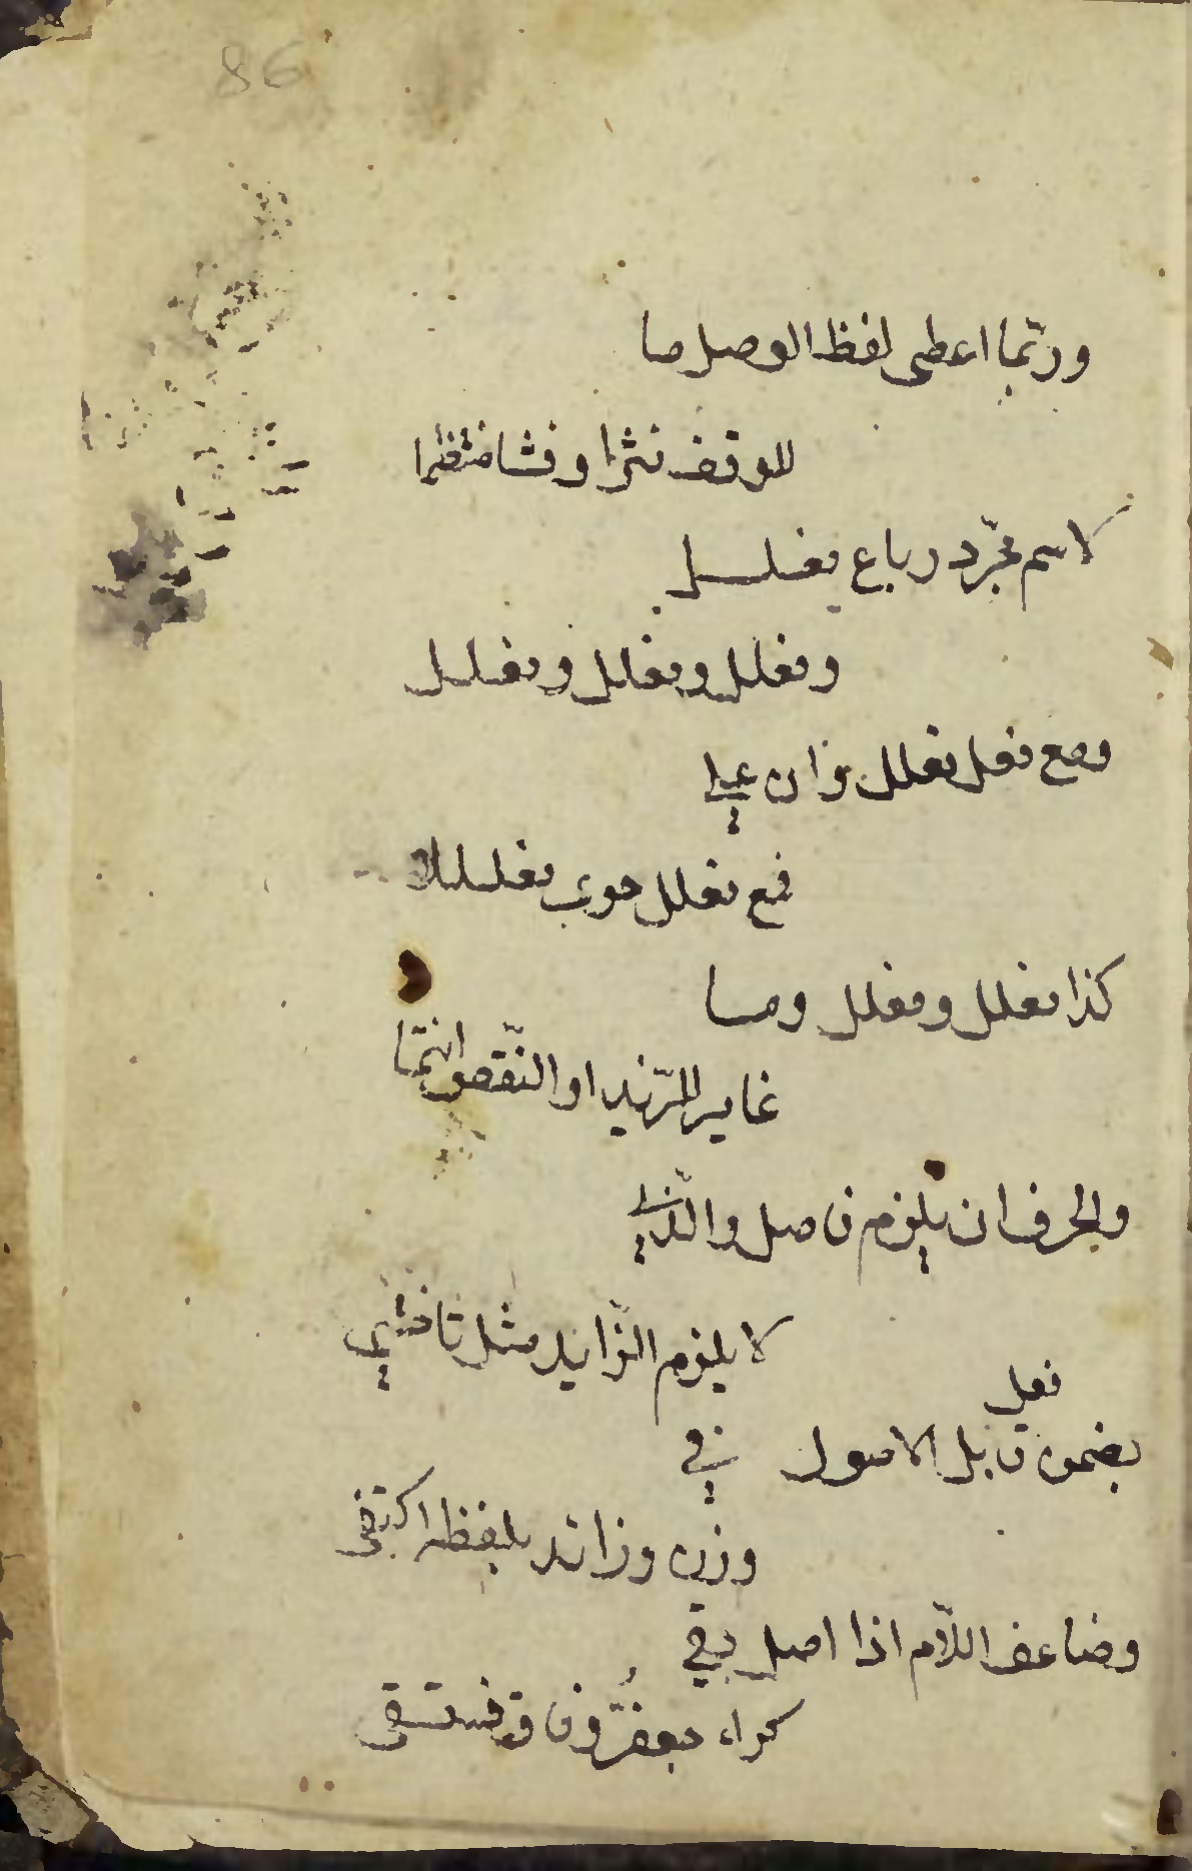 86
وربّما اعطى لفظ الوصل ما
للوقف نثرا وفشا منتظما
لاسم مجرّد رباع فعلل
وفعلل وفعلل وفعلل
ومع فعل فعلل وان علي
فمع فعلل حوى فعلللا
كذا فعلل وفعلل وما
غاير للزّيد او النّقص انتمى
والحرف ان يلزم فاصل والّذي
لا يلزم الزّايد مثل تا احتذي
بضمن فعل قابل الاصول في
وزن وزائد بلفظه اكتفي
وضاعف اللّام اذا اصل بقي
كراء جعفر وقاف فستق